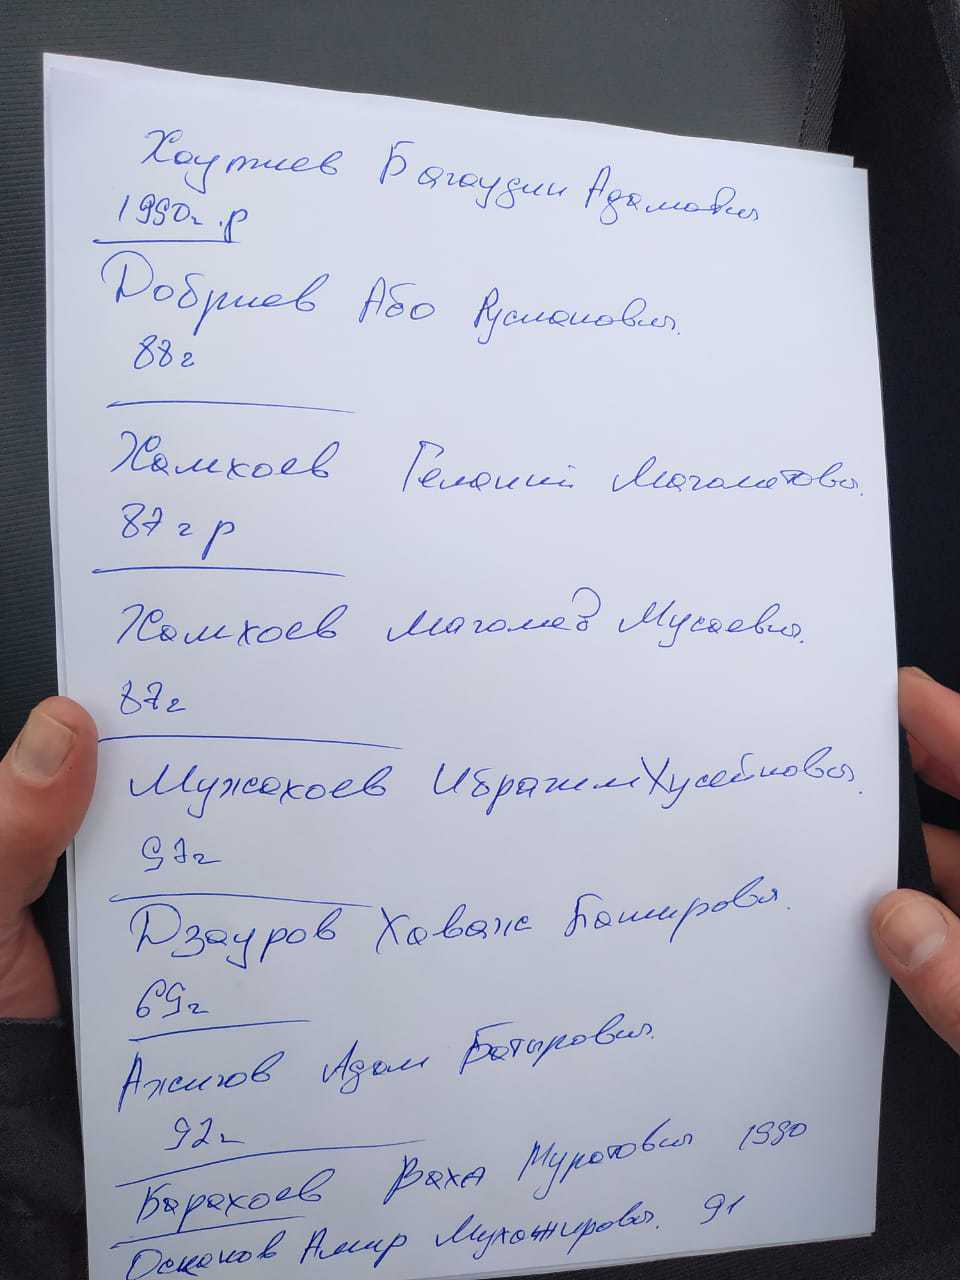 Хаутиев Багаудин Адамович
1990г.р
Добриев Або Русланович.
88г
Хамхоев Гелани Магометович.
87г р
Хамхоев Магомед Мусаевич.
87г
Мужахоев Ибрагим Хусейнович.
97г
Дзауров Хаваж Баширович.
69г
Ажигов Адам Батырович.
92г
Барахоев Ваха Муратович 1990
Осканов Амир Мухажирович. 91